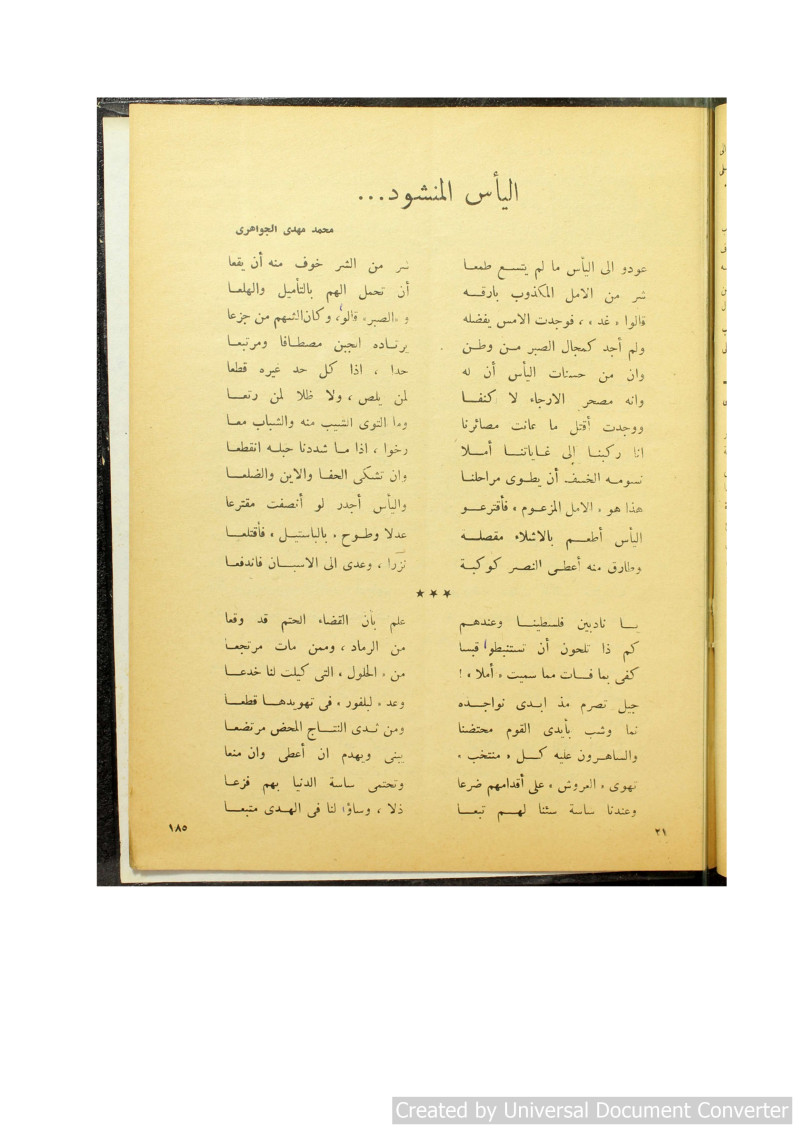 اليأس المنشود...
محمد مهدى الجواهرى
عودو الى اليأس ما لم يتسع طمعا شر من الشر خوف منه أن يقعا
شر من الامل المكذوب بارقه أن تحمل الهم بالتأميل والهلعا
قالوا « غد » ، فوجدت الامس يفضله و «الصبر» قالوا، وكان الشهم من جزعا
ولم أجد كمجال الصبر من وطن يرتاده الجبن مصطافا ومرتبعا
وان من حسنات اليأس أن له حدا ، اذا كل حد غيره قطعا
وانه مصحر الارجاء لا كنفا لمن يلص ، ولا ظلا لمن رتعا
ووجدت أقتل ما عانت مصائرنا وما التوى الشيب منه والشباب معا
انا ركبنا إلى غاياتنا أملا رخوا ، اذا ما شددنا حبله انقطعا
نسومه الخسف أن يطوى مراحلنا وان تشكى الحفا والاين والضلعا
هذا هو « الامل المزعوم » فأقترعو واليأس أجدر لو أنصفت مقترعا
اليأس أطعم بالاشلاء مقصلة عدلا وطوح « بالباستيل » فأقتلعا
وطارق منه أعطى النصر كوكبة نزرا ، وعدى الى الاسبان فاندفعا
★ ★ ★
يا نادبين فلسطينا وعندهم علم بأن القضاء الحتم قد وقعا
كم ذا تلحون أن تستنبطوا قبسا من الرماد ، وممن مات مرتجعا
كفى بما فات مما سميت « أملا » ! من « الحلول » التى كيلت لنا خدعا
جيل تصرم مذ ابدى نواجذه وعد « لبلفور » فى تهويدها قطعا
نما وشب بأيدى القوم محتضنا ومن ثدى النتاج المحض مرتضعا
والساهرون عليه كل « منتخب » يبنى ويهدم ان أعطى وان منعا
تهوى « العروش » على أقدامهم ضرعا وتحتمى ساسة الدنيا بهم فزعا
وعندنا ساسة سئنا لهم تبعا ذلا ، وساؤا لنا فى الهدى متبعا
٢١
١٨٥
Created by Universal Document Converter